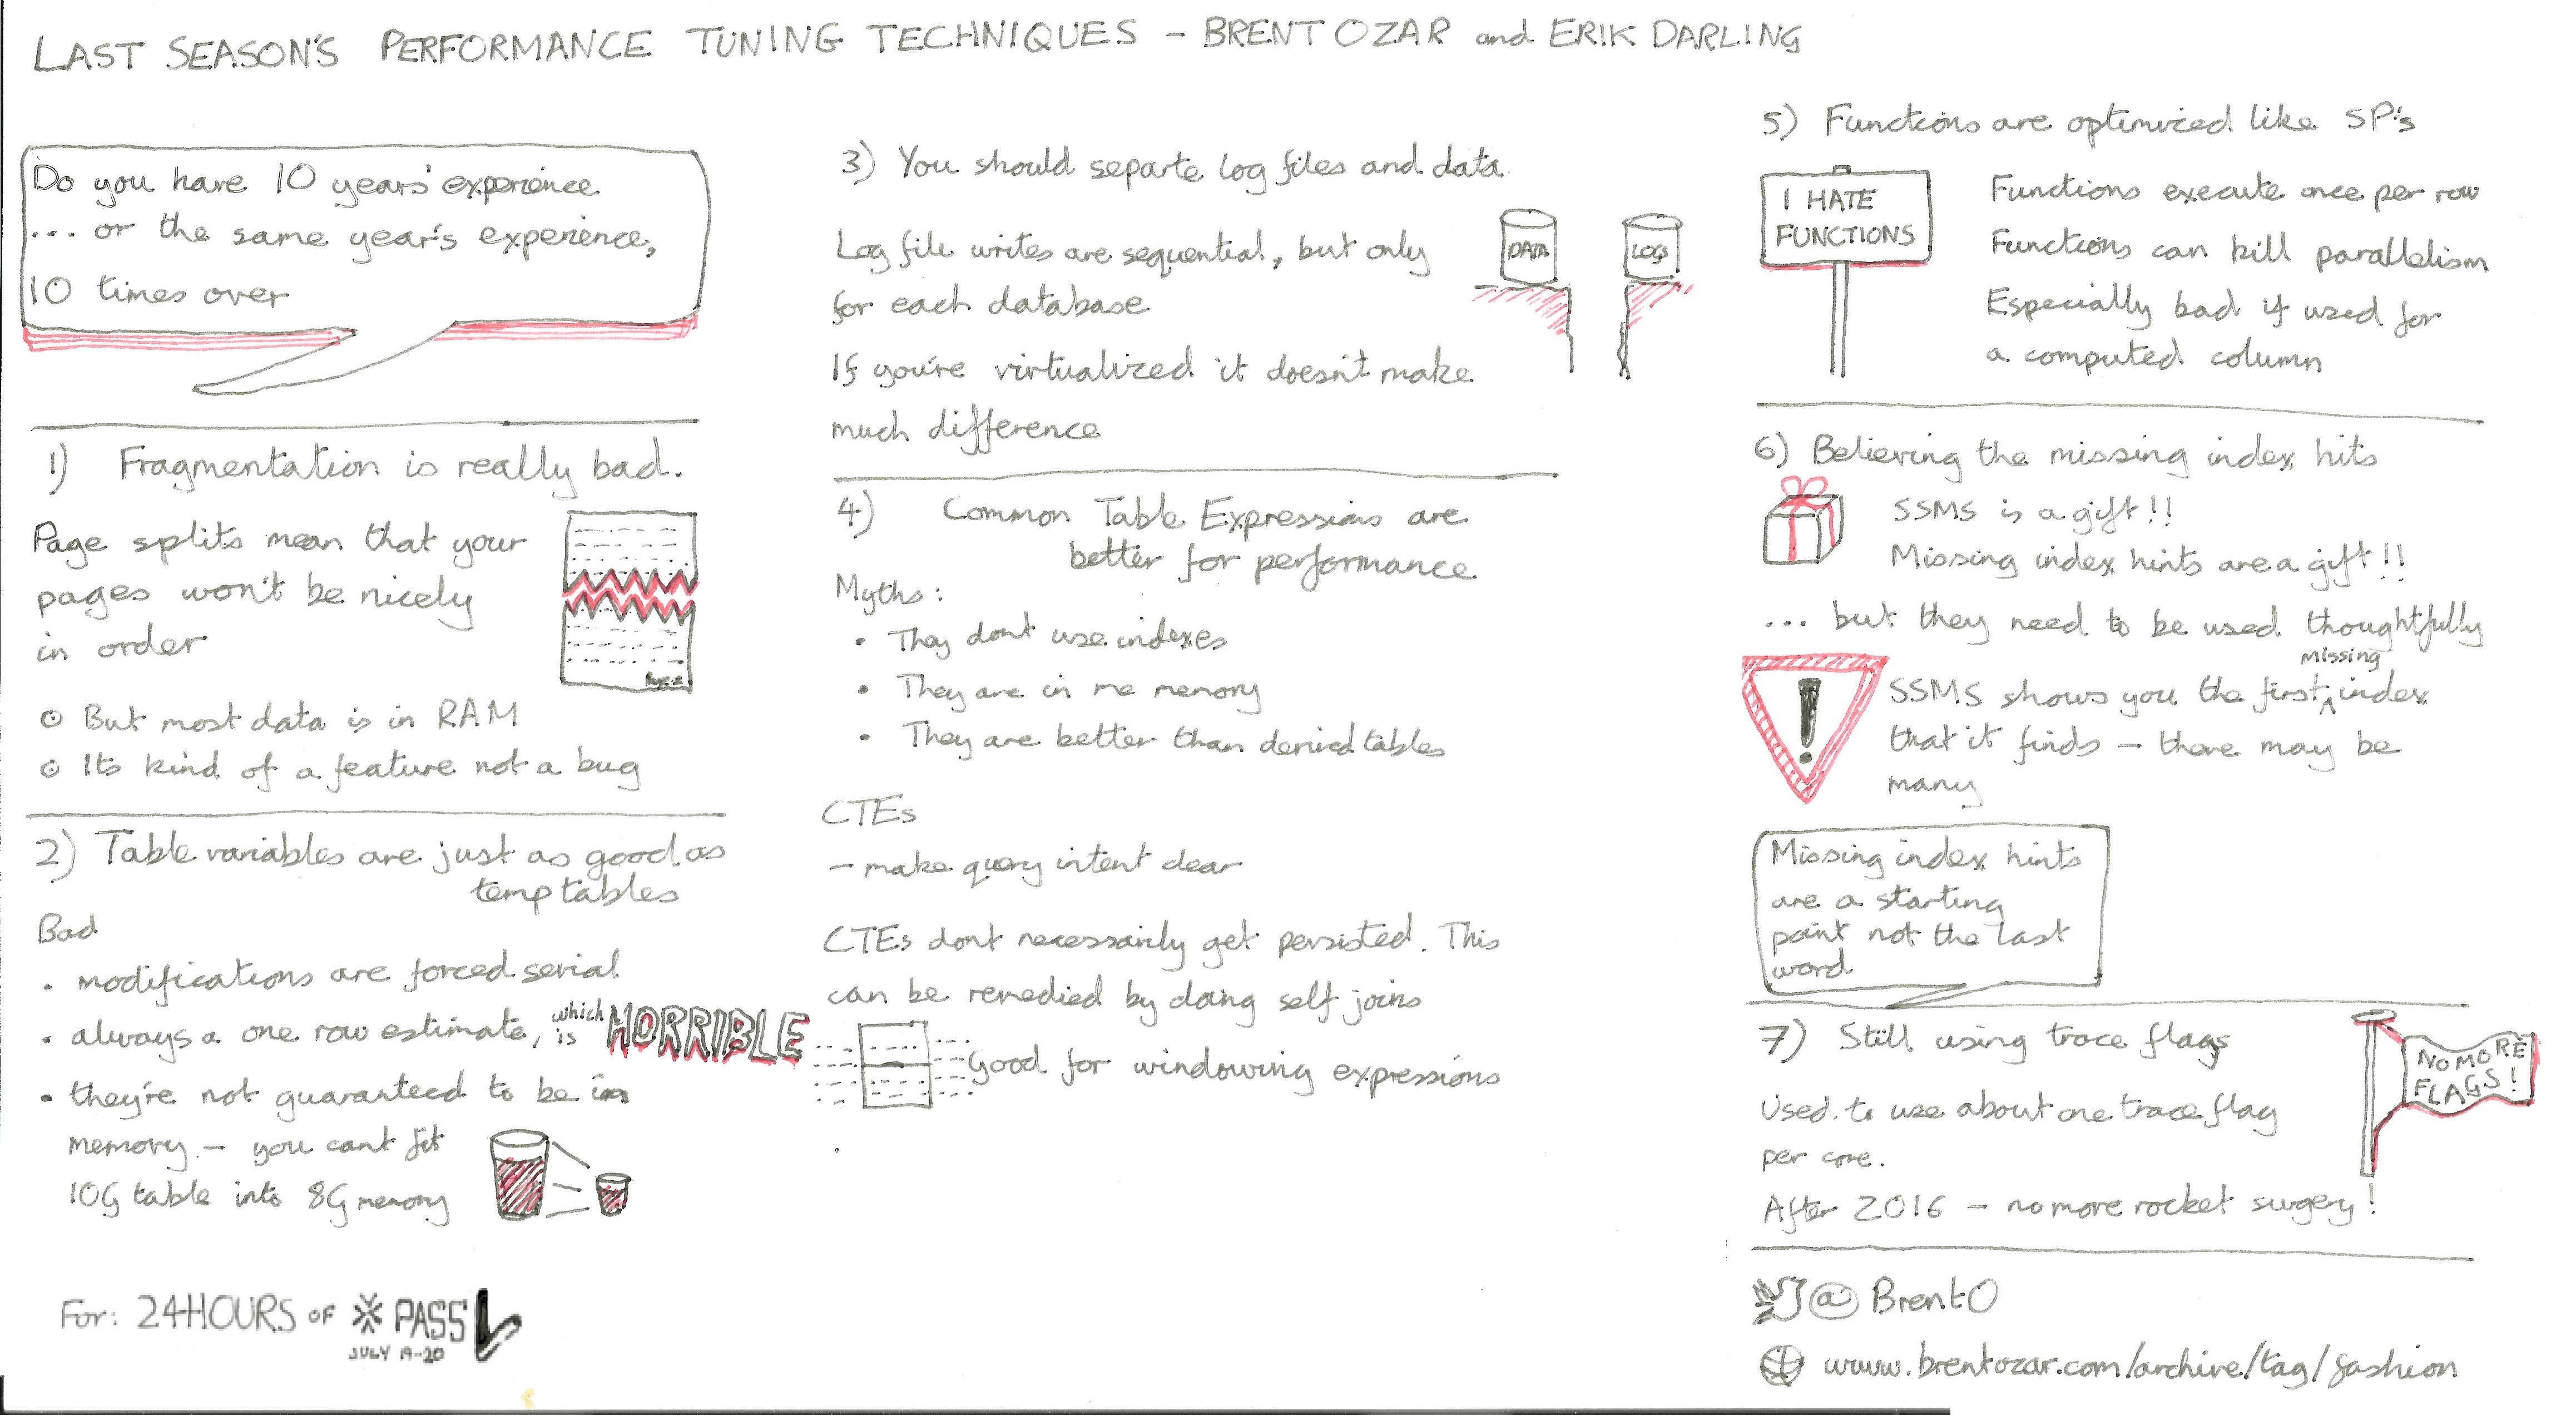 LAST SEASON'S PERFORMANCE TUNING TECHNIQUES - BRENT OZAR and ERIK DARLING
Do you have 10 years' experience
... or the same year's experience,
10 times over
1) Fragmentation is really bad.
Page splits mean that your
pages won't be nicely
in order
But most data is in RAM
Its kind of a feature not a bug
2) Table variables are just as good as
temp tables
Bad
• modifications are forced serial
• always a one row estimate, which is HORRIBLE
• they're not guaranteed to be in
memory - you cant fit
10G table into 8G memory
For: 24HOURS OF PASS
JULY 19-20
3) You should separte log files and data
DATA
LOGS
Log file writes are sequential, but only
for each database
If you're virtualized it doesn't make
much difference
4) Common Table Expressions are
better for performance
Myths:
• They dont use indexes
• They are in me memory
• They are better than derived tables
CTEs
- make query intent clear
CTEs dont necessarily get persisted. This
can be remedied by doing self joins
Good for windowing expressions
5) Functions are optimized like SP's
I HATE
FUNCTIONS
Functions execute once per row
Functions can kill parallelism
Especially bad if used for
a computed column
6) Believing the missing index hits
SSMS is a gift!!
Missing index hints are a gift!!
... but they need to be used thoughtfully
SSMS shows you the first missing index
that it finds - there may be
many
Missing index hints
are a starting
point not the last
word
7) Still using trace flags
NO MORE
FLAGS!
Used to use about one trace flag
per core.
After 2016 - no more rocket surgery!
@BrentO
www.brentozar.com/archive/tag/fashion